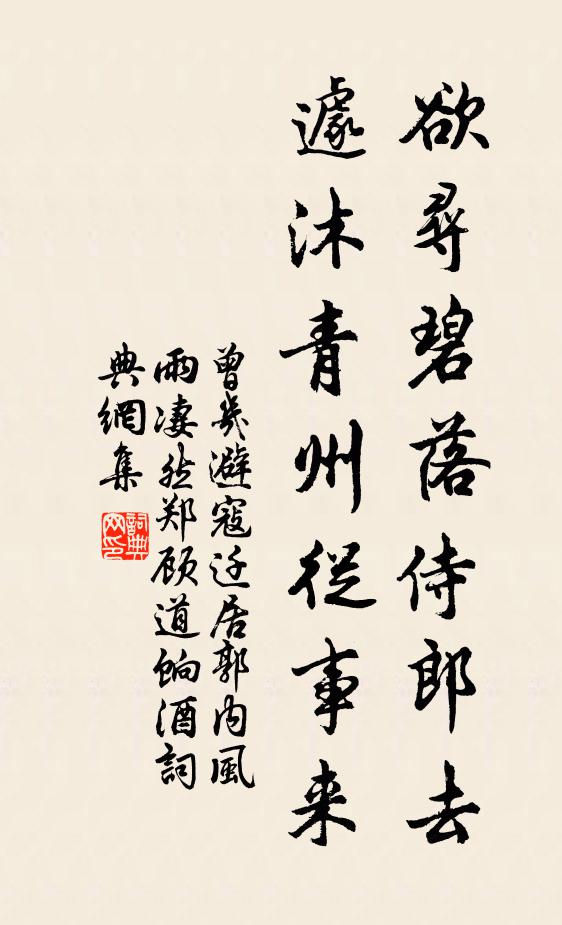 欲尋碧落侍郎去
遽沐青州從事来
曾幾避寇迁居郭内風
雨凄然郑顾道饷酒詞
典網集
詞典网印